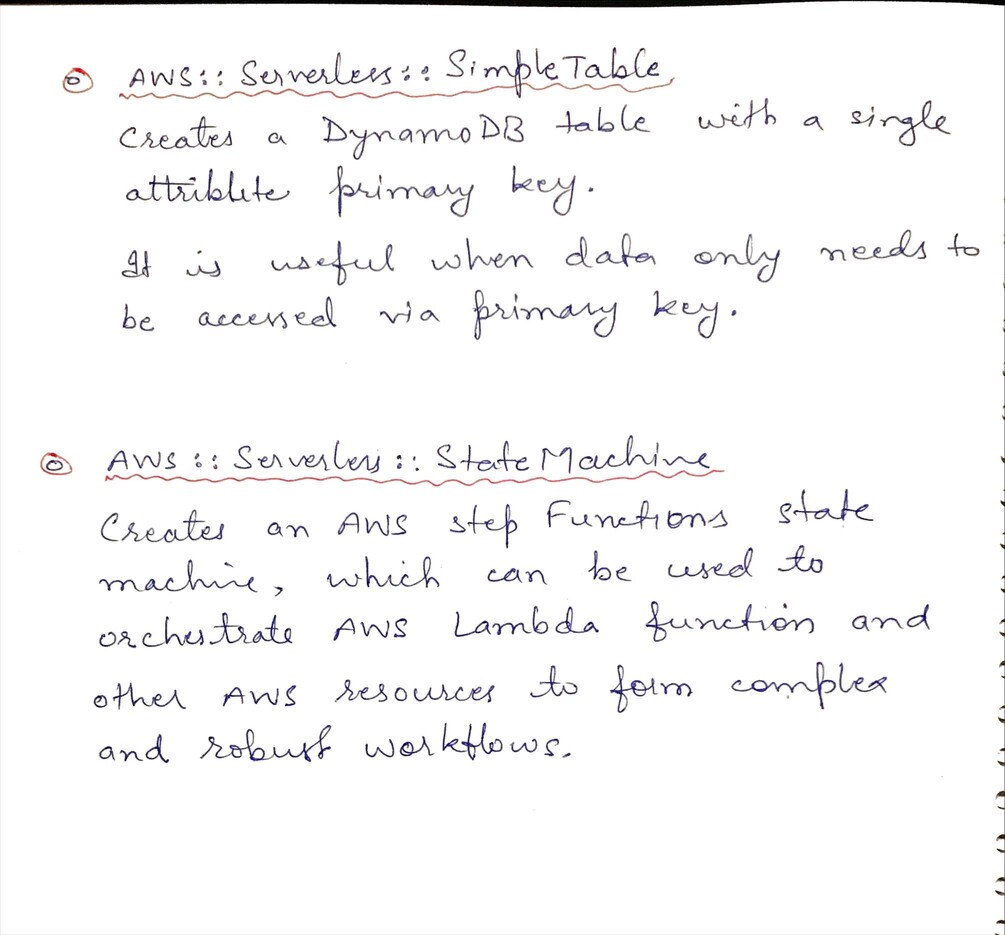 AWS:: Serverless:: SimpleTable
Creates a DynamoDB table with a single
attribute primary key.
It is useful when data only needs to
be accessed via primary key.
AWS :: Serverless :: StateMachine
Creates an AWS step Functions state
machine, which can be used to
orchestrate AWS Lambda function and
other AWS resources to form complex
and robust workflows.